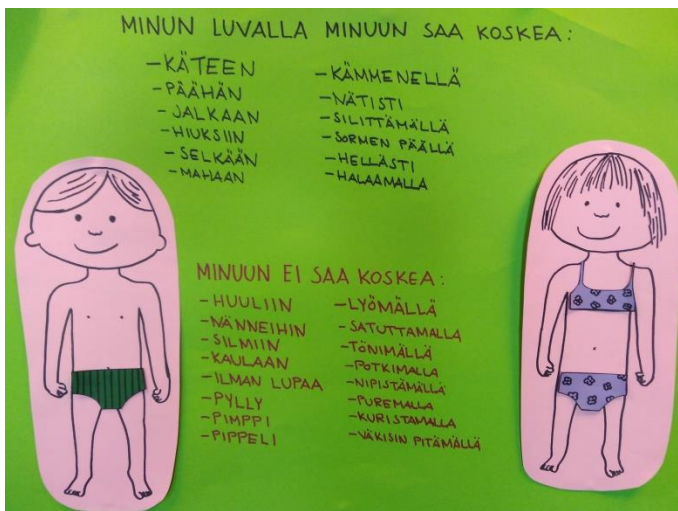 MINUN LUVALLA MINUUN SAA KOSKEA:
-KÄTEEN
-PÄÄHÄN
-JALKAAN
-HIUKSIIN
-SELKÄÄN
-MAHAAN
-KÄMMENELLÄ
-NÄTISTI
-SILITTÄMÄLLÄ
-SORMEN PÄÄLLÄ
-HELLÄSTI
-HALAAMALLA
MINUUN EI SAA KOSKEA:
-HUULIIN
-NÄNNEIHIN
-SILMIIN
-KAULAAN
-ILMAN LUPAA
-PYLLY
-PIMPPI
-PIPPELI
-LYÖMÄLLÄ
-SATUTTAMALLA
-TÖNIMÄLLÄ
-POTKIMALLA
-NIPISTÄMÄLLÄ
-PUREMALLA
-KURISTAMALLA
-VÄKISIN PITÄMÄLLÄ